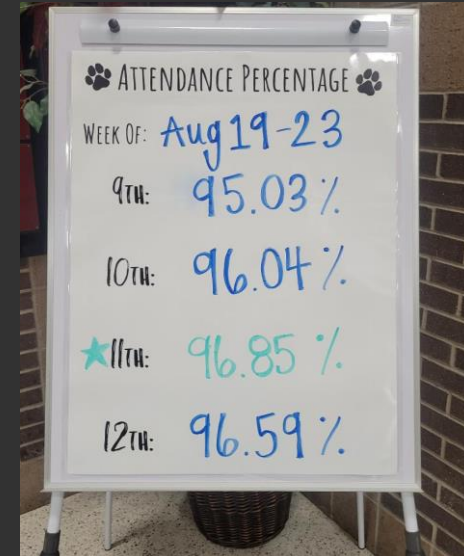 ATTENDANCE PERCENTAGE
WEEK OF: Aug 19-23
9TH: 95.03%
10TH: 96.04%
11TH: 96.85%
12TH: 96.59%